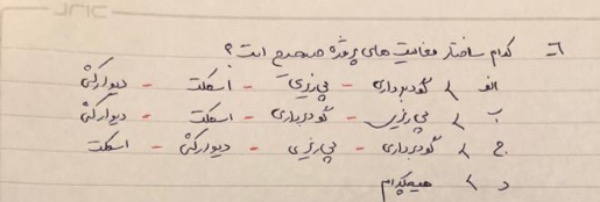 ٦- کدام ساختار فعالیت های پروژه صحیح است ؟
الف > گودبرداری - پی ریزی - اسکلت - دیوارکشی
ب > پی ریزی - گودبرداری - اسکلت - دیوارکشی
ج > گودبرداری - پی ریزی - دیوارکشی - اسکلت
د > هیچکدام